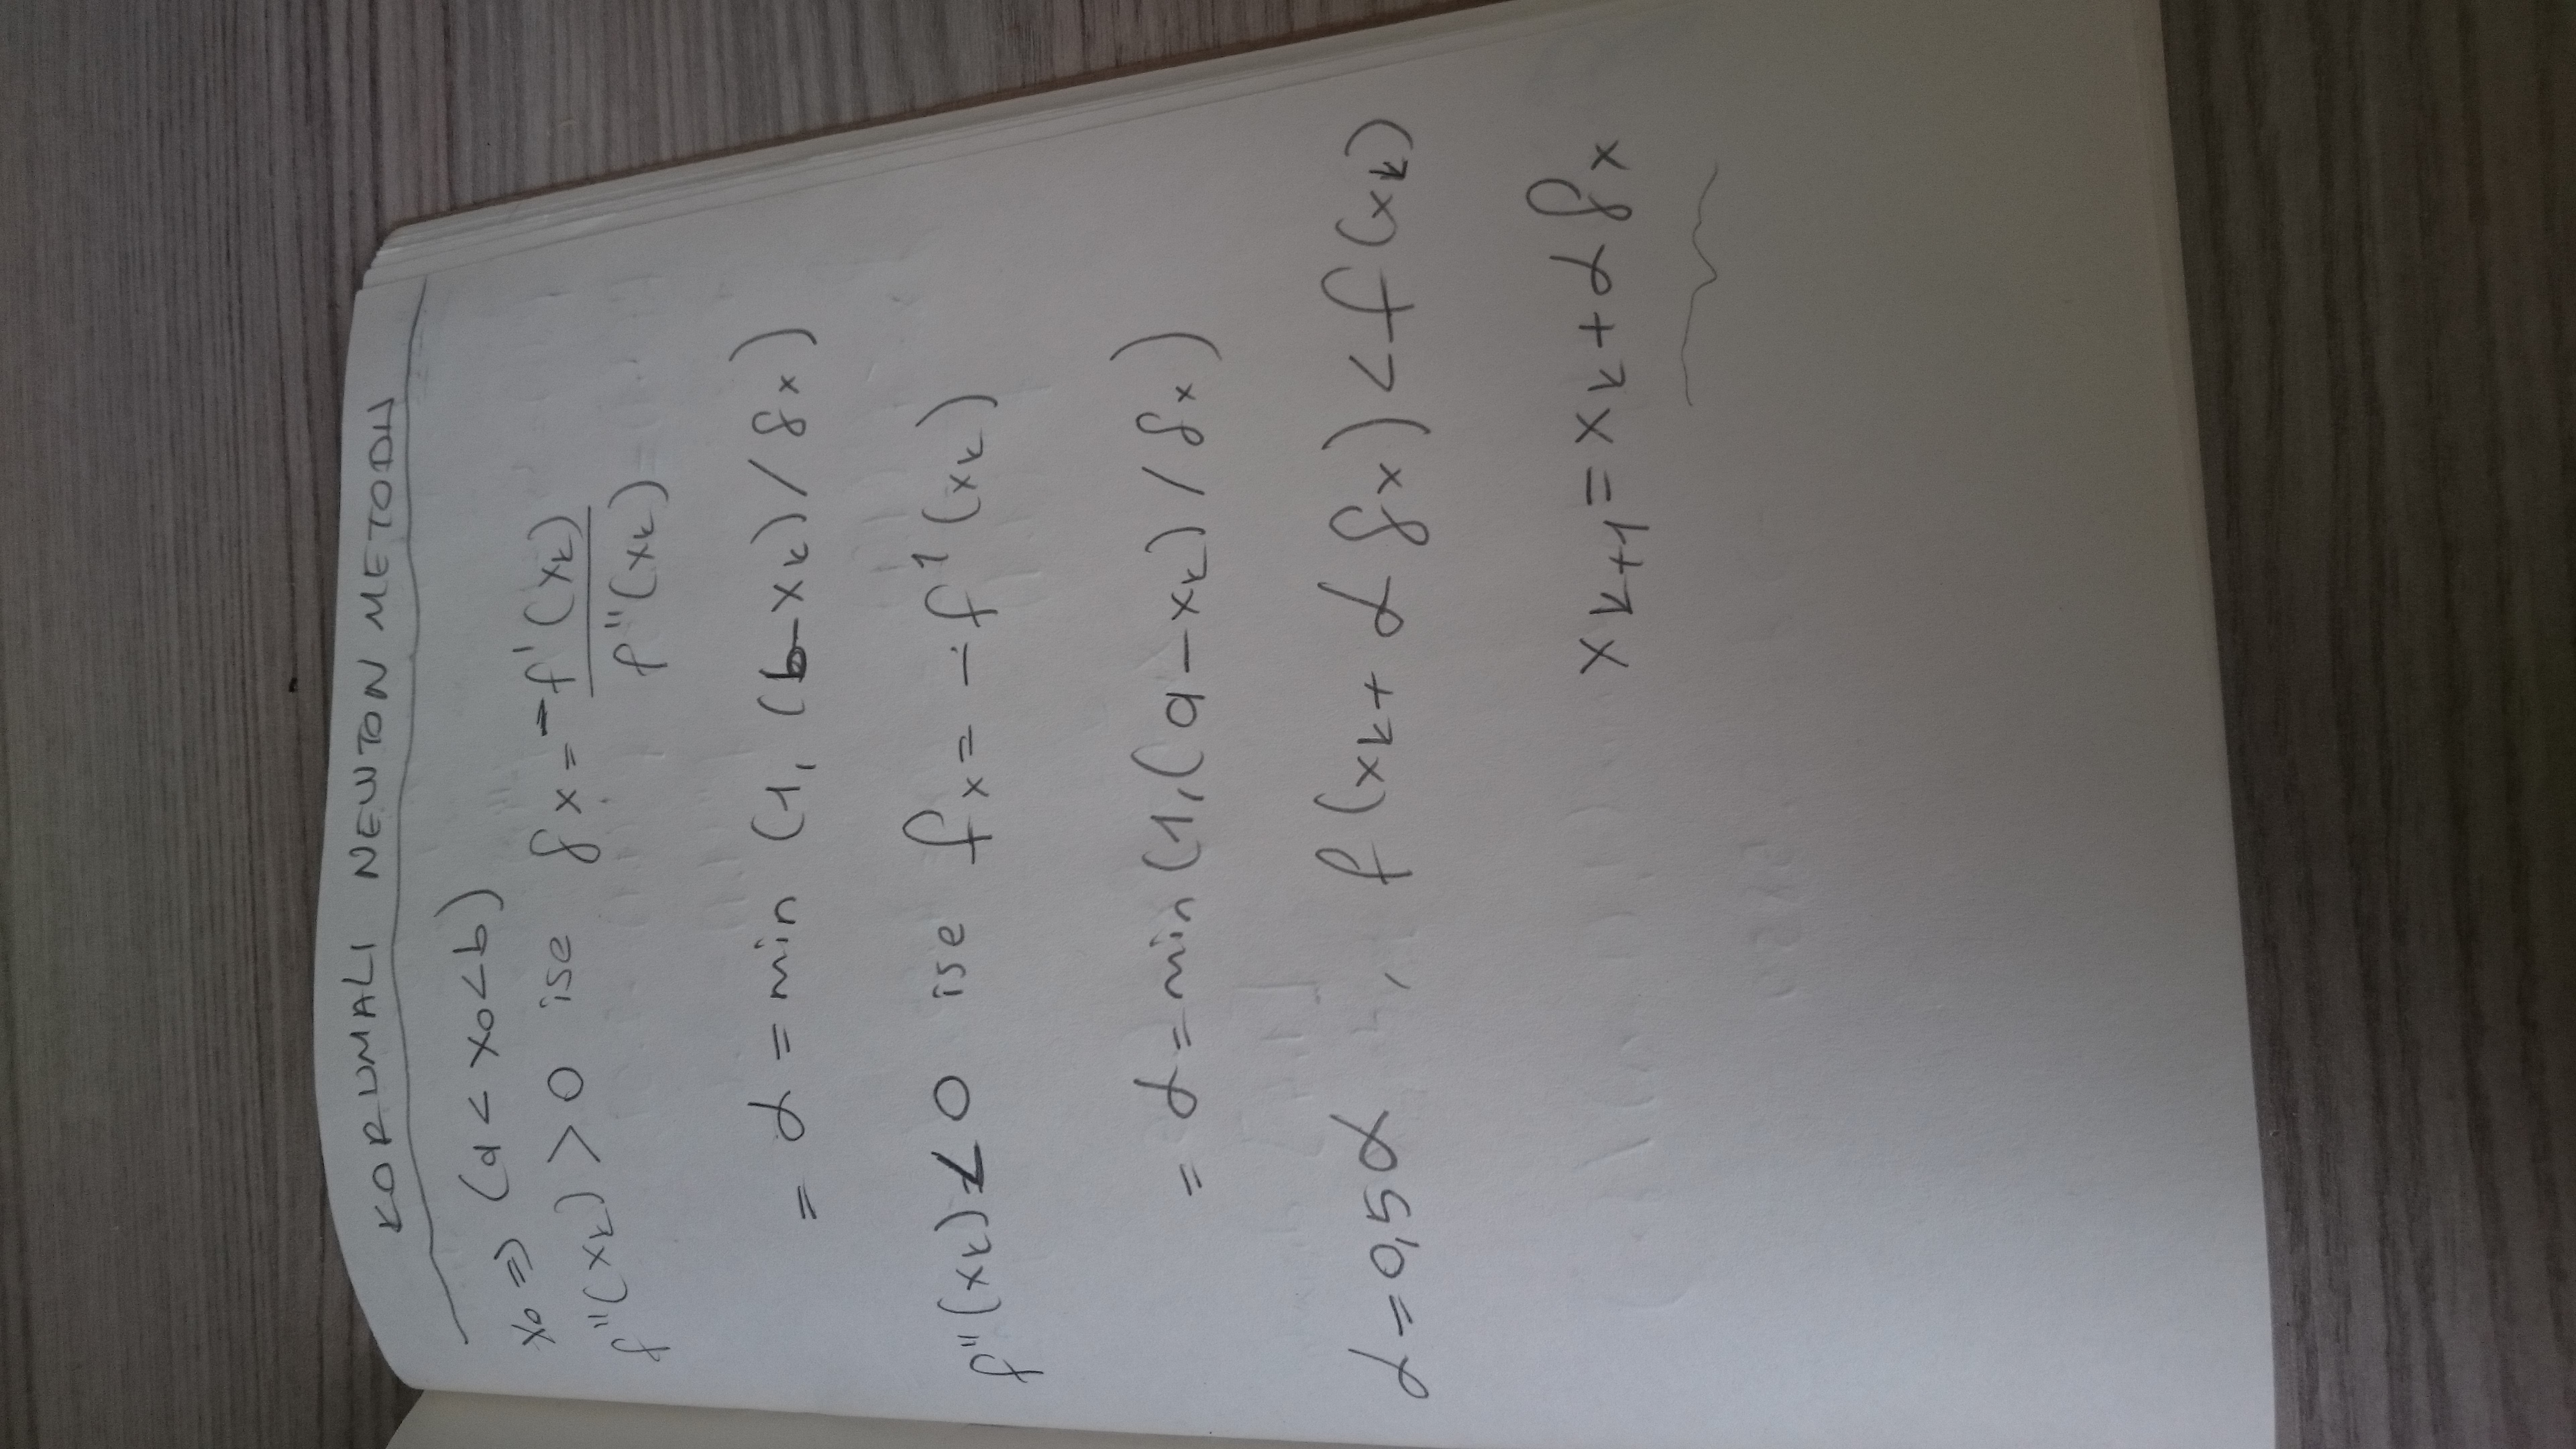 KORUMALI NEWTON METODU
x₀ ⇒ (a < x₀ < b)
f''(xₖ) > 0 ise δx = -f'(xₖ) / f''(xₖ)
= α = min (1, (b-xₖ) / δx)
f''(xₖ) < 0 ise δx = -f'(xₖ)
= α = min (1, (a-xₖ) / δx)
α = 0,5α , f(xₖ + α δx) < f(xₖ)
xₖ₊₁ = xₖ + α δx